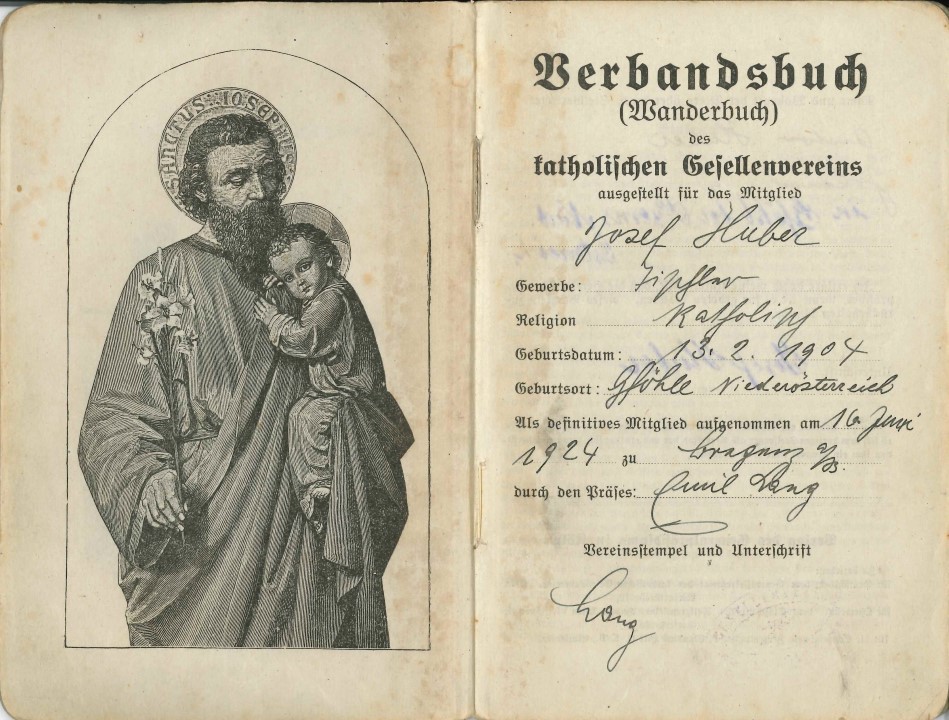 SANCTUS IOSEPHUS
Verbandsbuch
(Wanderbuch)
des
katholischen Gesellenvereins
ausgestellt für das Mitglied
Josef Huber
Gewerbe: Tischler
Religion Katholisch
Geburtsdatum: 13. 2. 1904
Geburtsort: Gföhle Niederösterreich
Als definitives Mitglied aufgenommen am 16 Juni
1924 zu Bregenz
durch den Präses: Emil Lang
Vereinsstempel und Unterschrift
Lang